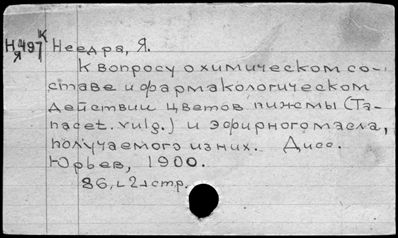 К
Н 497 Неедра, Я.
Я
К вопросу о химическом со-
ставе и фармакологическом
действии цветов пижмы (Ta-
nacet. vulg.) и эфирного масла,
получаемого из них. Дисс.
Юрьев, 1900.
86, L 2 ┘ стр.